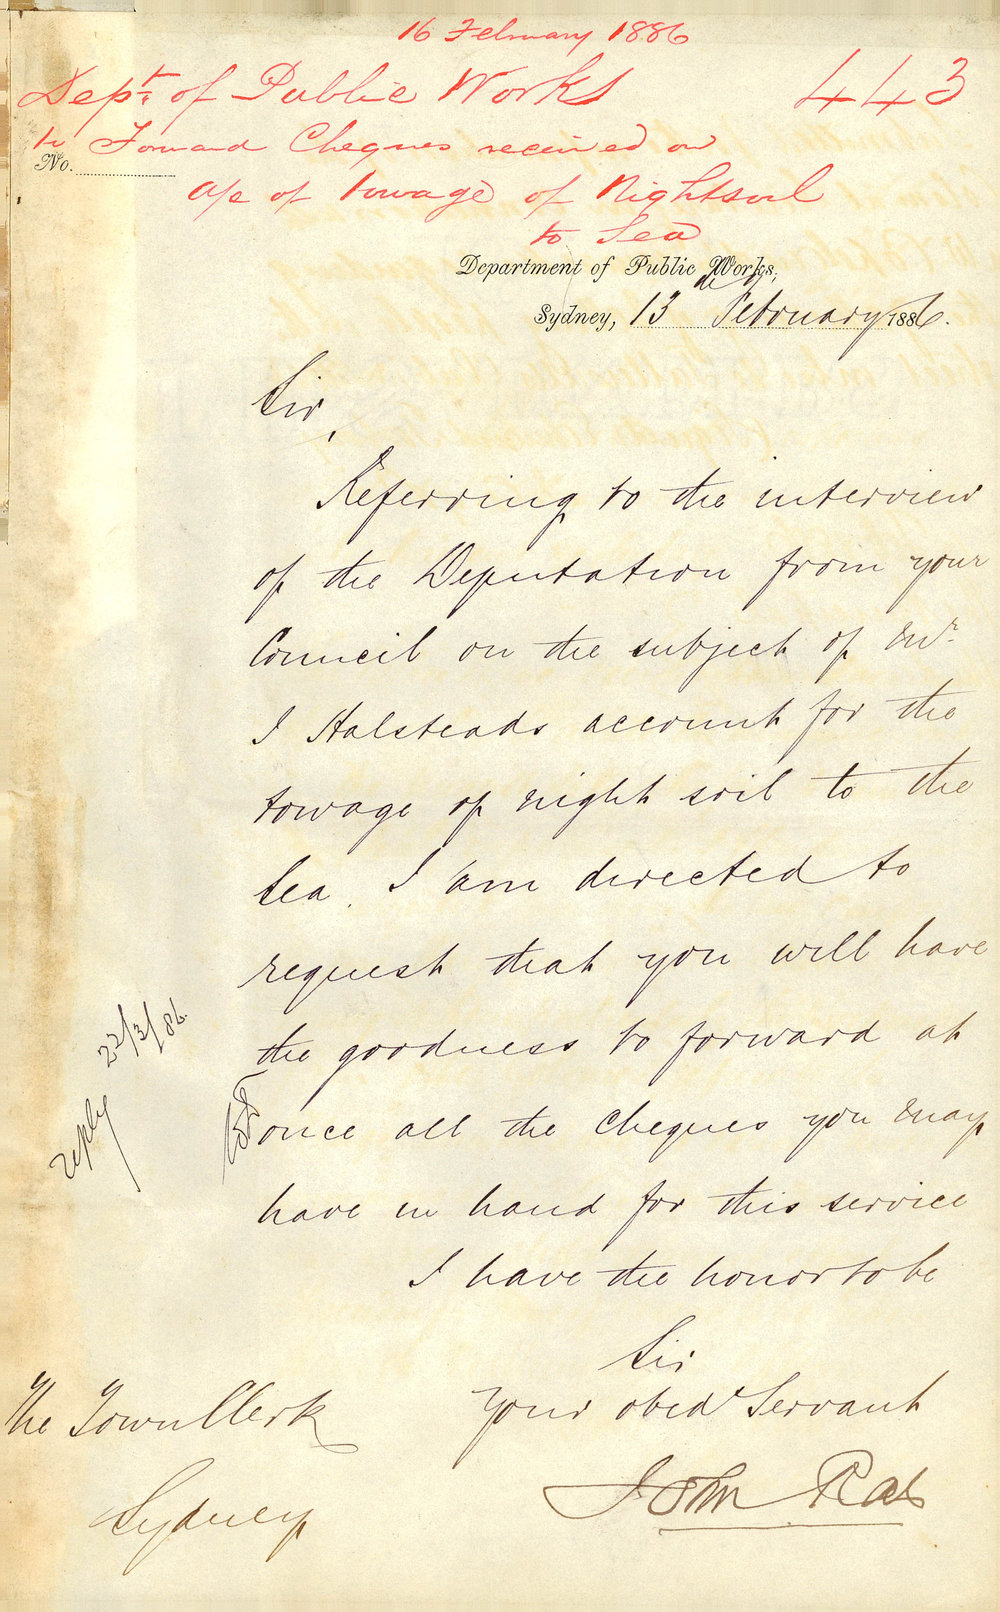 16 February 1886
Dept. of Public Works 443
to Forward Cheques received on
No.
a/c of towage of Nightsoil
to Sea
Department of Public Works,
Sydney, 13 February 1886.
Sir,
Referring to the interview
of the Deputation from your
Council on the subject of Mr
J Halsteads account for the
towage of night soil to the
Sea, I am directed to
request that you will have
the goodness to forward at
22/3/86.
once all the cheques you may
reply
have in hand for this service
I have the honor to be
Sir
Your obedt Servant
The Town Clerk
John Rae
Sydney